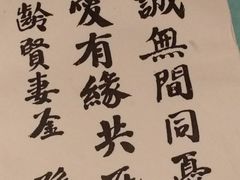 誠無間同憂
有緣共
齡賢妻